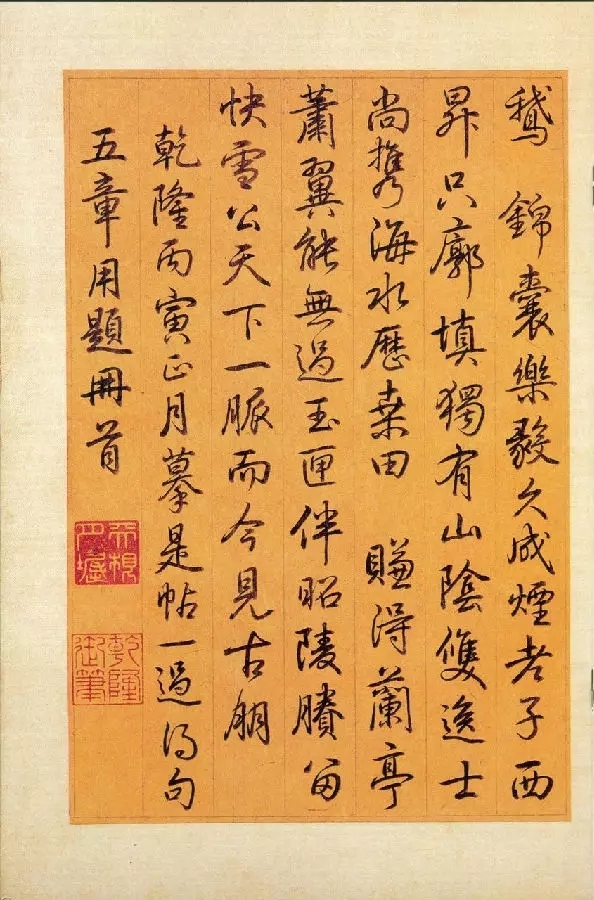 鵝 錦囊樂毅久成煙老子西
昇只廓填獨有山陰雙逸士
尚携海水歷桒田 賺得蘭亭
蕭翼能無過玉匣伴昭陵賸留
快雪公天下一脈而今見古朋
乾隆丙寅正月摹是帖一過得句
五章用題冊首
乾隆
御筆